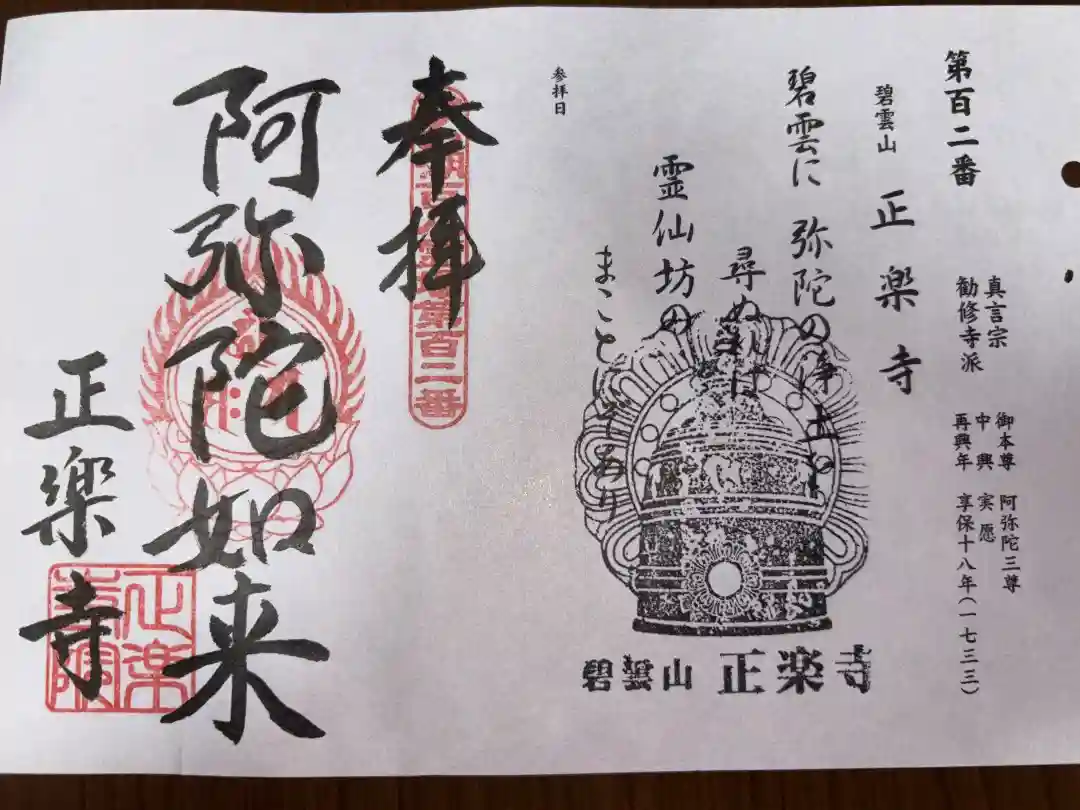 第百二番
真言宗
勧修寺派
御本尊 阿弥陀三尊
中興 実愿
再興年 享保十八年(一七三三)
碧雲山 正楽寺
碧雲に 弥陀の浄土を
尋ぬれば
霊仙坊の
まことにぞあり
参拝日
碧雲山 正楽寺
奉拝
第百二番
阿弥陀如来
正楽寺